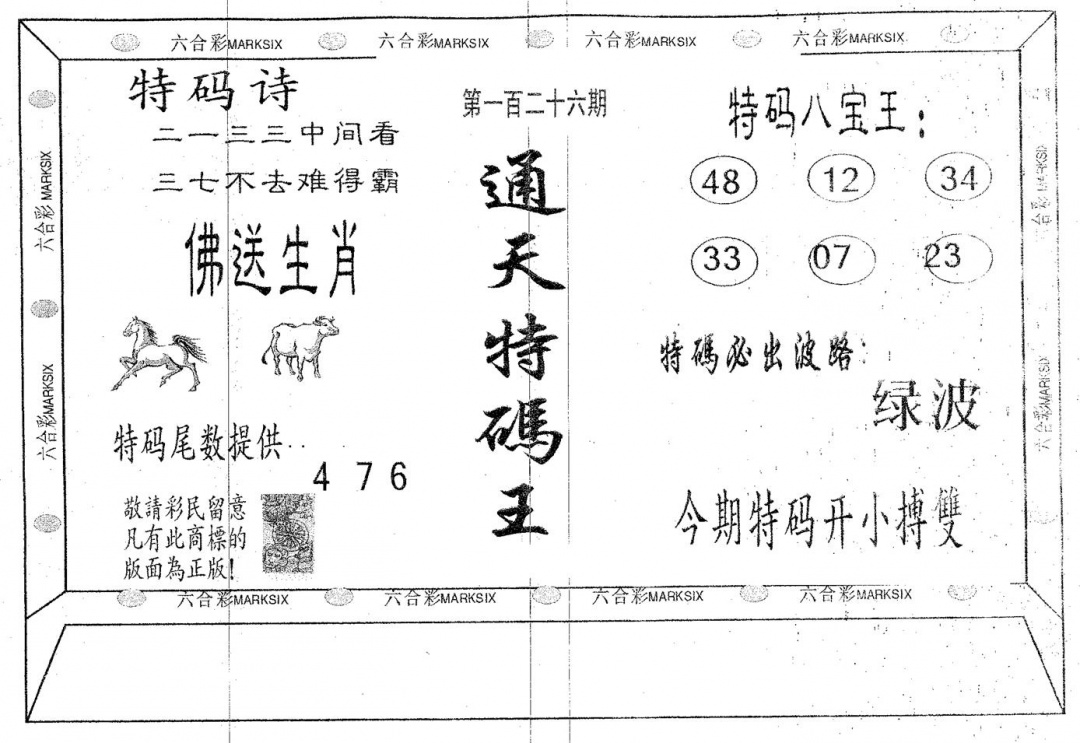 六合彩MARKSIX 六合彩MARKSIX 六合彩MARKSIX 六合彩MARKSIX
特码诗
二一三三中间看
三七不去难得霸
佛送生肖
特码尾数提供..
4 7 6
敬請彩民留意
凡有此商標的
版面為正版!
第一百二十六期
通天特碼王
特码八宝王:
48 12 34
33 07 23
特碼必出波路:
绿波
今期特码开小搏雙
六合彩MARKSIX
六合彩MARKSIX
六合彩MARKSIX
六合彩MARKSIX
六合彩MARKSIX 六合彩MARKSIX 六合彩MARKSIX 六合彩MARKSIX